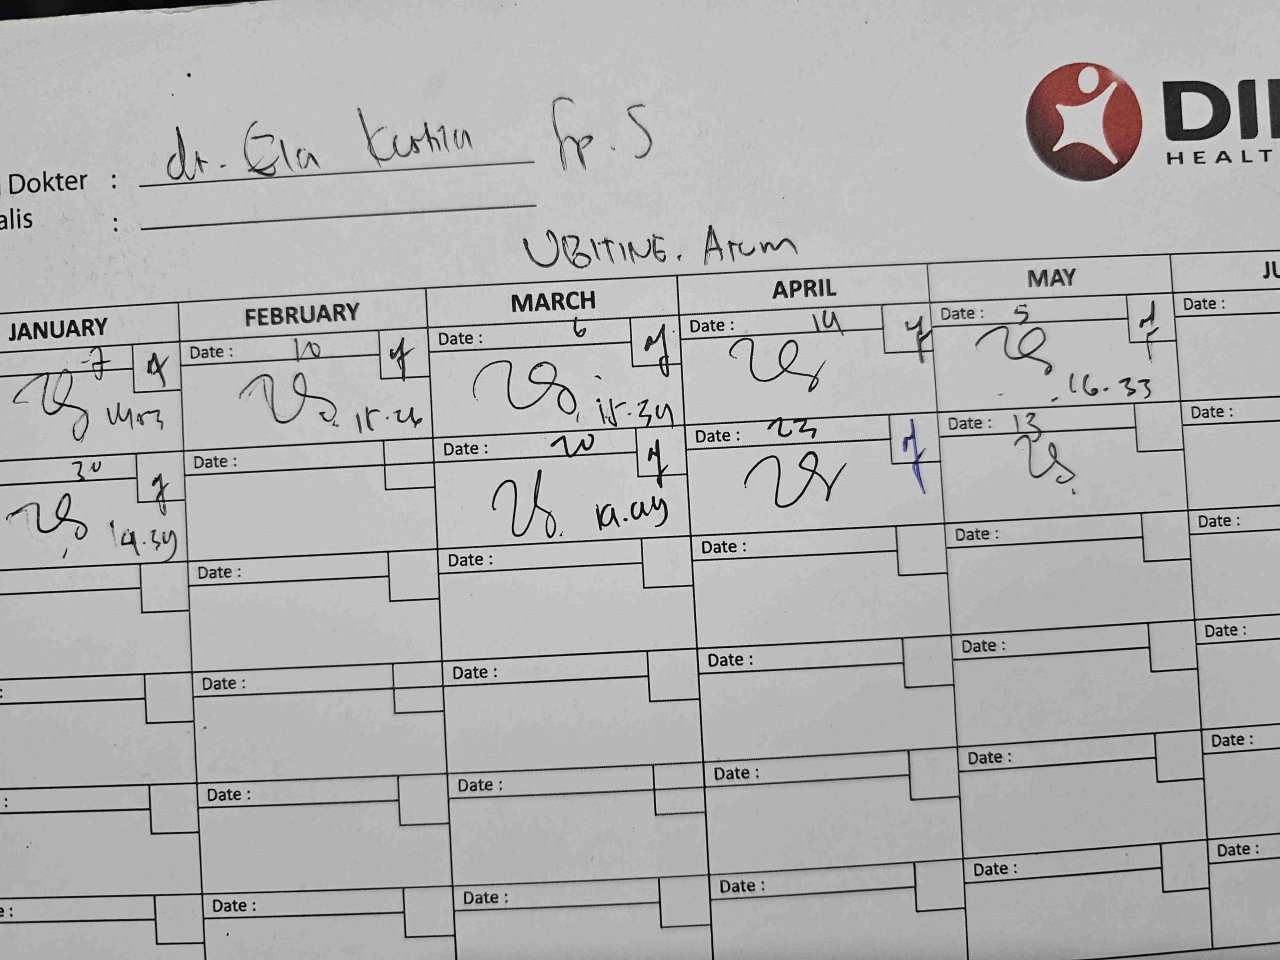 dr. Ela Kustila Sp. S
Dokter :
alis :
DI
HEALT
UBITINE. Arum
JANUARY FEBRUARY MARCH APRIL MAY JU
7 Date : 10 Date : 6 Date : 14 Date : 5 Date :
15.26 15.34 16.33
30 Date : Date : 20 Date : 23 Date : 13 Date :
19.34
Date : Date : Date : Date : Date :
: Date : Date : Date : Date : Date :
: Date : Date : Date : Date : Date :
e : Date : Date : Date : Date : Date :